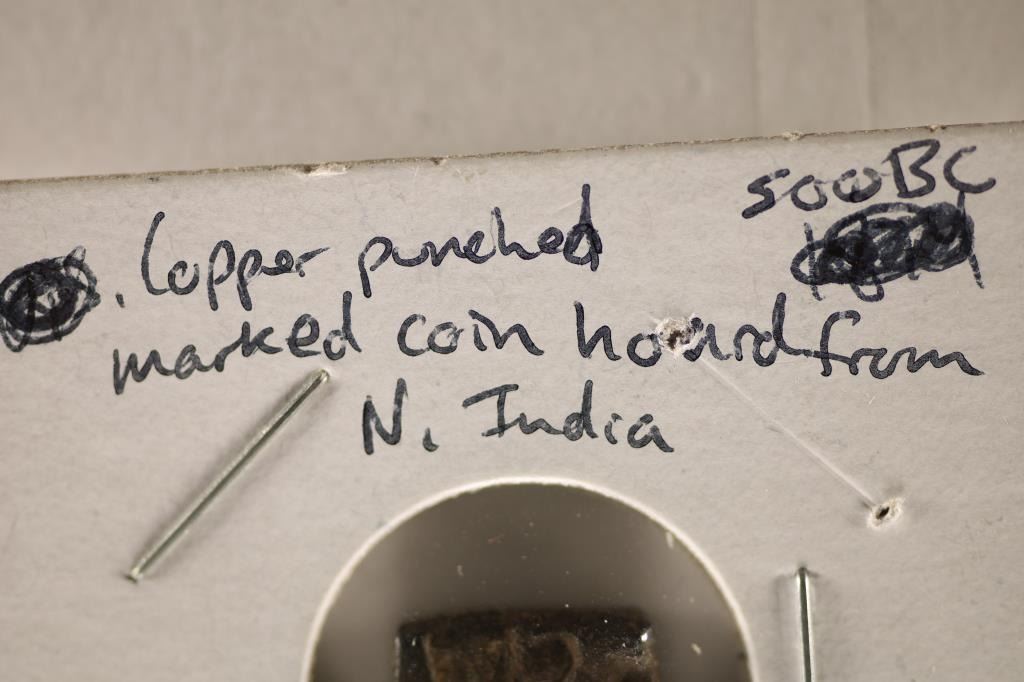 500BC
. Copper punched
marked coin hoard from
N. India